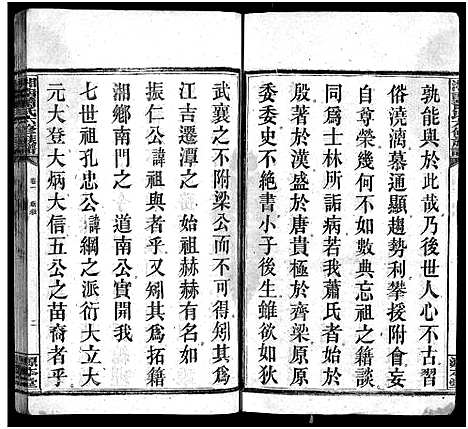 孰能與於此哉乃後世人心不古習
俗澆漓慕通顯趨勢利攀援附會
自尊榮幾何不如數典忘祖之籍談
同爲士林所詬病若我蕭氏者始於
殷著於漢盛於唐貴極於齊梁原原
委委史不絶書小子後生雖欲如狄
武襄之不附梁公而不可得矧其爲
江吉遷潭之　始祖赫赫有聲如
振仁公諱祖興者乎又矧其爲拓籍
湘鄉　道南公實開我
七世祖孔忠公諱綱之派衍大立大
元大登大炳大信五公之苗裔者乎
卷一
二